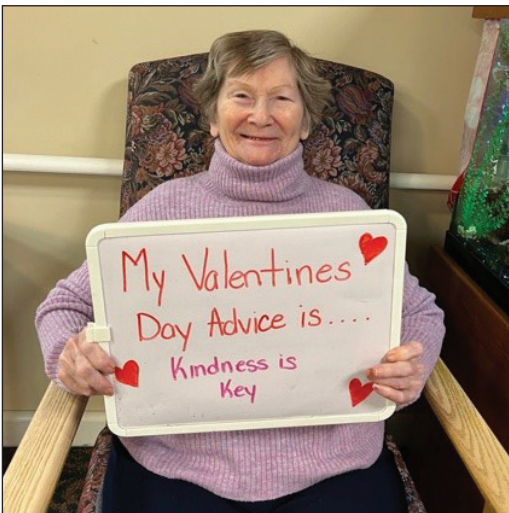 My Valentines
Day Advice is....
Kindness is
Key